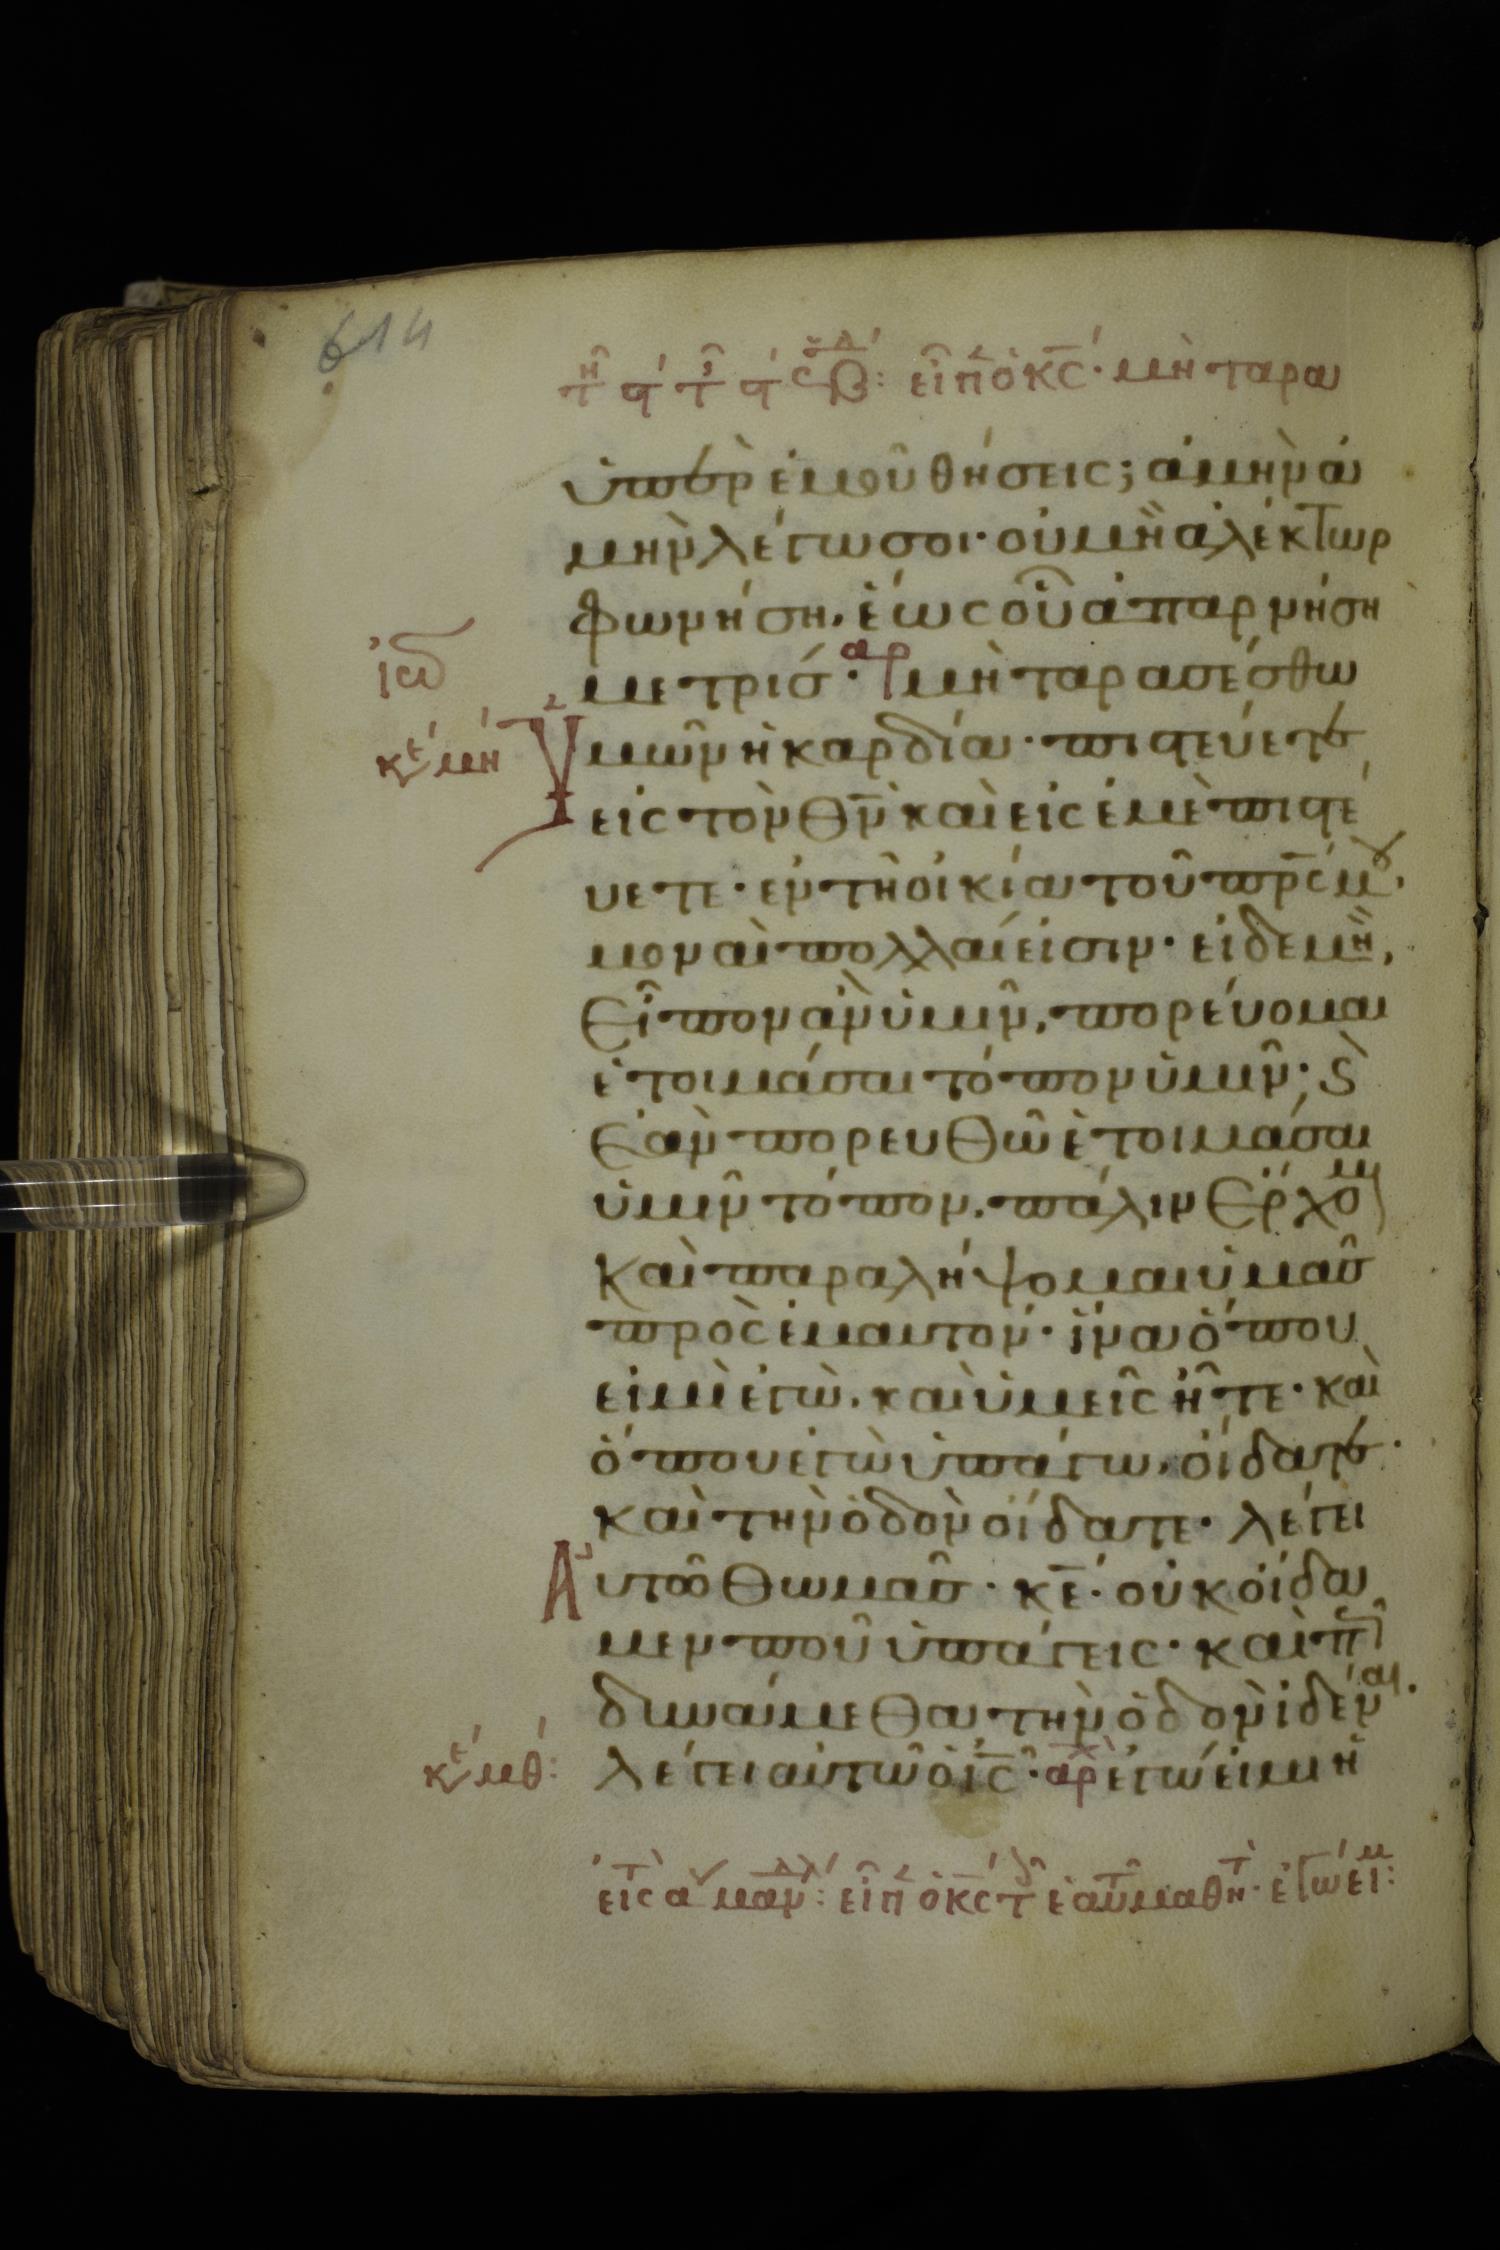 614
εἶπ ὁ κς· μὴ ταρα
ὑπὲρ ἐμοῦ θήσεις; ἀμὴν ἀ
μὴν λέγω σοι· οὐ μὴ ἀλέκτωρ
φωνήση, ἕως οὗ ἀπαρνήση
με τρίσ· αρ μὴ ταρασέσθω
κε μη Ὑμῶν ἡ καρδία· πιστεύετε
εἰς τὸν θν καὶ εἰς ἐμὲ πιστέ
υετε· ἐν τῆ οἰκία τοῦ πρς μου,
μοναὶ πολλαί εἰσιν· εἰ δε μὴ,
Εἶπον ἀν ὑμῖν, πορεύομαι
ἑτοιμάσαι τόπον ὑμῖν; ϗ
Εὰν πορευθῶ ἑτοιμάσαι
ὑμῖν τόπον, πάλιν Ερχομ
Καὶ παραλήψομαι ὑμᾶσ
πρὸς ἐμαυτόν· ἵνα ὅπου
εἰμὶ ἐγὼ, καὶ ὑμεῖς ἦτε· καὶ
ὅπου ἐγὼ ὑπάγω, οἴδατε·
καὶ τὴν ὁδὸν οἴδατε· λέγει
Αυτῶ Θωμᾶσ· κε· οὐκ οἴδα
μεν ποῦ ὑπάγεις· καὶ π
δυνάμεθα τὴν ὁδὸν ἰδέναι·
κε μθ: λέγει αὐτῶ ὁ ις· αρ ἐγώ εἰμι ἡ
εἶπ ὁ κς τ ἑαυ μαθητ· ἐγώ ειμ: